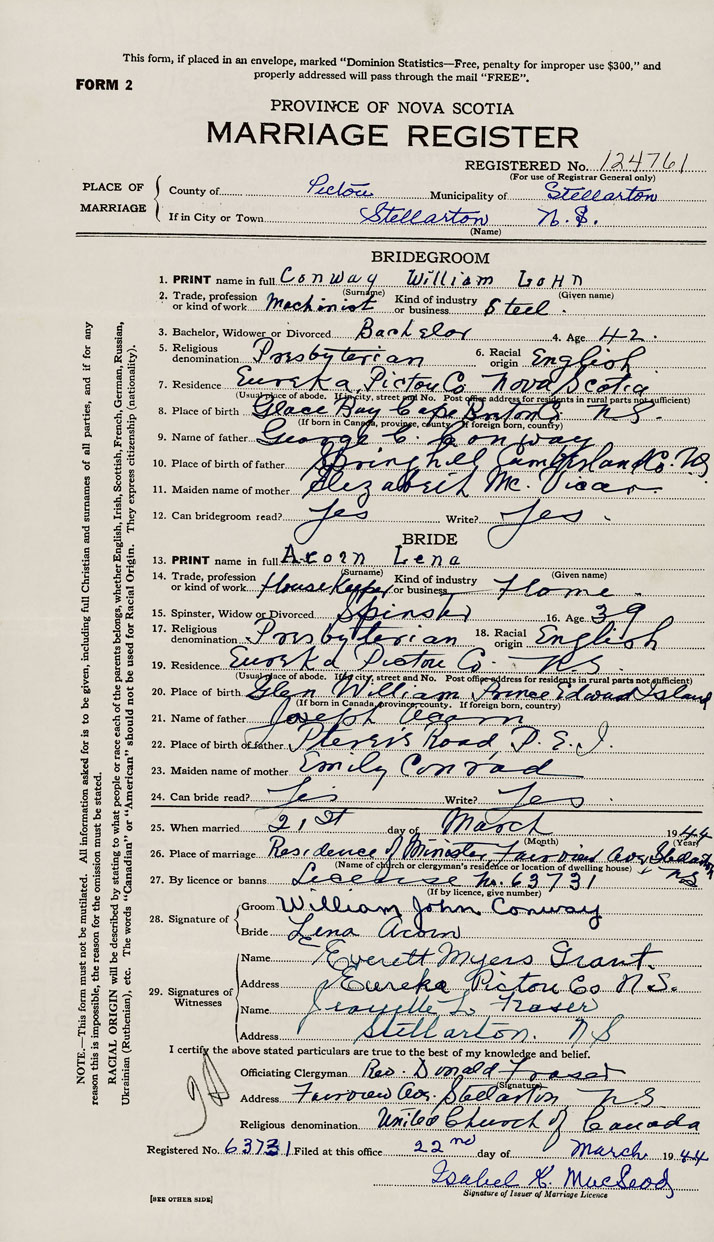 This form, if placed in an envelope, marked "Dominion Statistics—Free, penalty for improper use $300," and
properly addressed will pass through the mail "FREE".
FORM 2
PROVINCE OF NOVA SCOTIA
MARRIAGE REGISTER
REGISTERED No. 124761
(For use of Registrar General only)
PLACE OF MARRIAGE
County of Pictou Municipality of Stellarton
If in City or Town Stellarton N.S.
(Name)
BRIDEGROOM
1. PRINT name in full Conway William John
(Surname) (Given name)
2. Trade, profession or kind of work Machinist Kind of industry or business Steel.
3. Bachelor, Widower or Divorced Bachelor 4. Age 42.
5. Religious denomination Presbyterian 6. Racial origin English
7. Residence Eureka Pictou Co Nova Scotia
(Usual place of abode. If in city, street and No. Post office address for residents in rural parts not sufficient)
8. Place of birth Glace Bay Cape Breton Co. N.S.
(If born in Canada, province, county. If foreign born, country)
9. Name of father George C. Conway
10. Place of birth of father Springhill Cumberland Co. N.S
11. Maiden name of mother Elizabeth Mc. Vicar.
12. Can bridegroom read? Yes Write? Yes.
BRIDE
13. PRINT name in full Acorn Lena
(Surname) (Given name)
14. Trade, profession or kind of work Housekeeper Kind of industry or business Home.
15. Spinster, Widow or Divorced Spinster 16. Age 39
17. Religious denomination Presbyterian 18. Racial origin English
19. Residence Eureka Pictou Co. N.S.
(Usual place of abode. If in city, street and No. Post office address for residents in rural parts not sufficient)
20. Place of birth Glen William Prince Edward Island
(If born in Canada, province, county. If foreign born, country)
21. Name of father Joseph Acorn
22. Place of birth of father Road P.E.I.
23. Maiden name of mother Emily Conrad
24. Can bride read? Yes Write? Yes.
25. When married 21st day of March 1944
(Month) (Year)
26. Place of marriage Residence of Minister, Fairview Ave, Stellarton N.S
(Name of church or clergyman's residence or location of dwelling house)
27. By licence or banns License No. 63731
(If by licence, give number)
28. Signature of
Groom William John Conway
Bride Lena Acorn
29. Signatures of Witnesses
Name Everett Myers Grant.
Address Eureka Pictou Co N.S.
Name Jeanette L. Fraser
Address Stellarton. N S
I certify the above stated particulars are true to the best of my knowledge and belief.
Officiating Clergyman Rev. Donald Fraser
(Signature)
Address Fairview Ave. Stellarton N.S.
Religious denomination United Church of Canada
Registered No. 63731 Filed at this office 22nd day of March 1944
Isabel K. MacLeod
Signature of Issuer of Marriage Licence
[SEE OTHER SIDE]
NOTE.—This form must not be mutilated. All information asked for is to be given, including full Christian and surnames of all parties, and if for any
reason this is impossible, the reason for the omission must be stated.
RACIAL ORIGIN will be described by stating to what people or race each of the parents belongs, whether English, Irish, Scottish, French, German, Russian,
Ukrainian (Ruthenian), etc. The words "Canadian" or "American" should not be used for Racial Origin. They express citizenship (nationality).